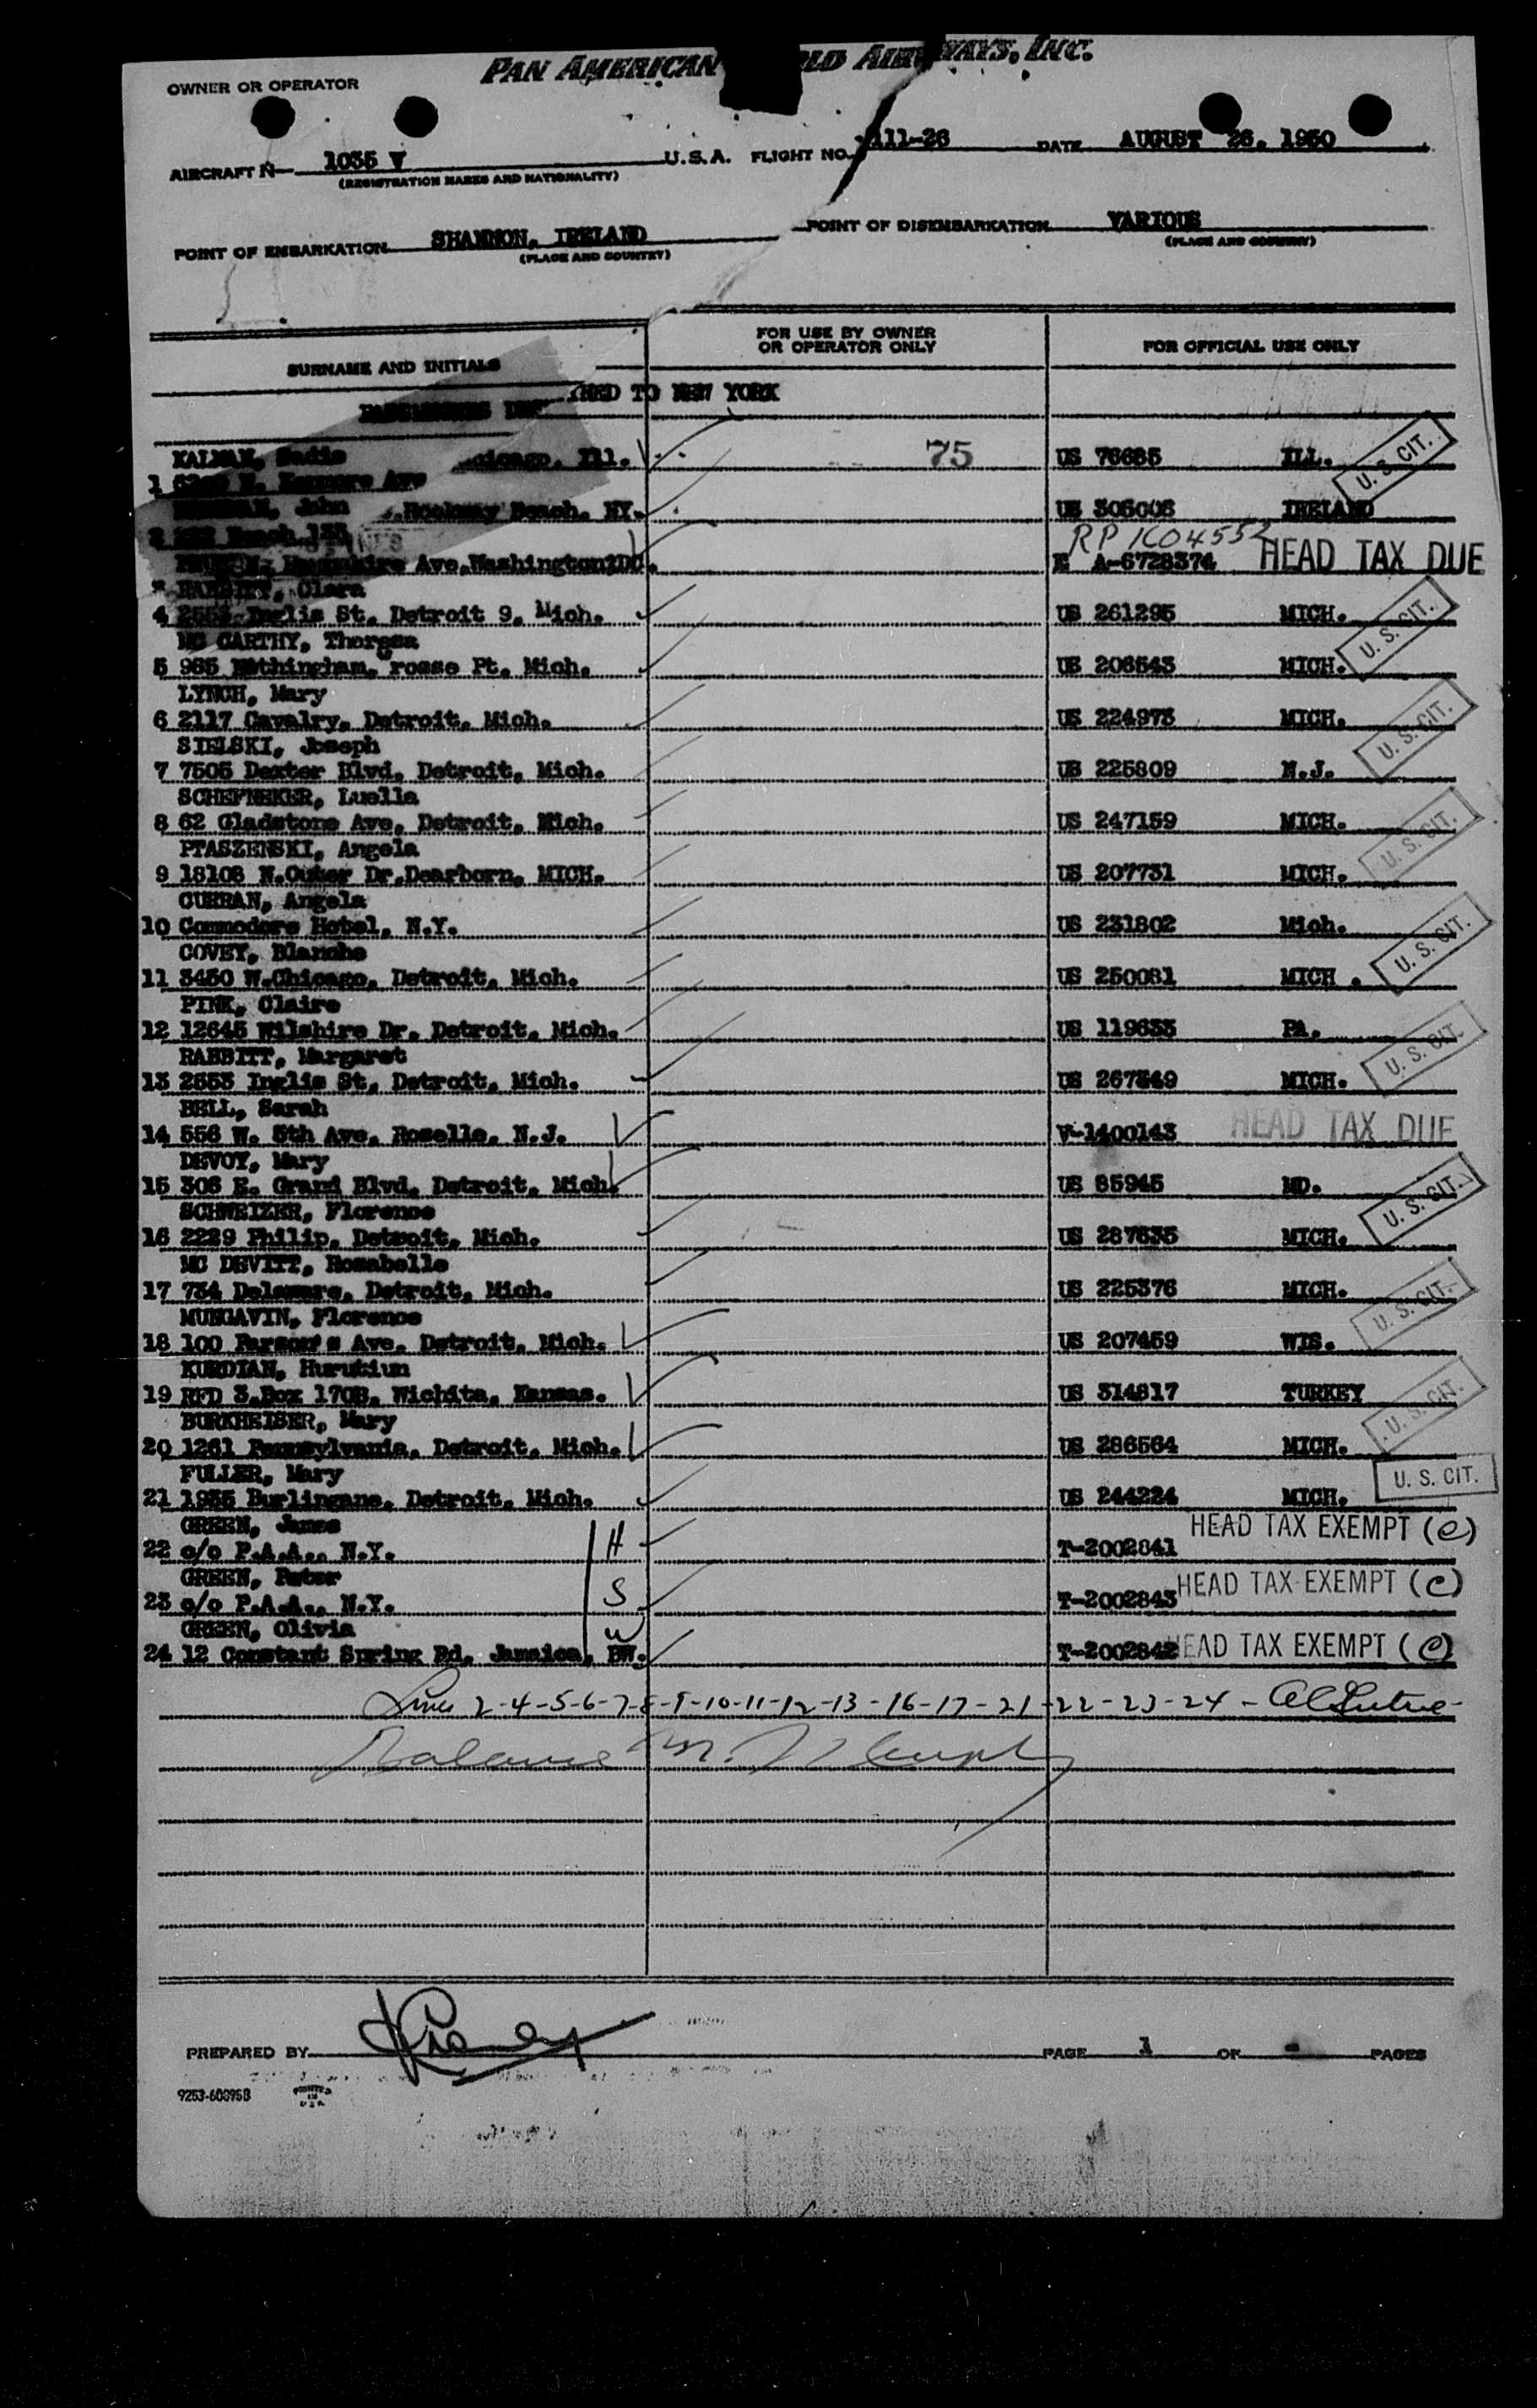 PAN AMERICAN WORLD AIRWAYS, INC.
OWNER OR OPERATOR
AIRCRAFT N— 1035 V U.S.A. FLIGHT NO. 111-26 DATE AUGUST 26. 1950
(REGISTRATION MARKS AND NATIONALITY)
POINT OF EMBARKATION SHANNON, IRELAND POINT OF DISEMBARKATION VARIOUS
(PLACE AND COUNTRY) (PLACE AND COUNTRY)
SURNAME AND INITIALS FOR USE BY OWNER OR OPERATOR ONLY FOR OFFICIAL USE ONLY
PASSENGERS NED TO NEW YORK
KALMAN, Sadie
1 Ave Chicago, Ill. 75 US 76685 ILL. U. S. CIT.
John
2 Beach 133 Rockaway Beach. NY. US 305006 IRELAND
RP 1604552
Ave.Washington,DC. E A-6728374 HEAD TAX DUE
RABBITT, Clara
4 2553 Inglis St, Detroit 9, Mich. US 261295 MICH. U. S. CIT.
MC CARTHY, Theresa
5 985 Nothingham, rosse Pt, Mich. US 206543 MICH.
LYNCH, Mary
6 2117 Cavalry, Detroit, Mich. US 224973 MICH. U. S. CIT.
SIELSKI, Joseph
7 7505 Dexter Blvd, Detroit, Mich. US 225809 N.J.
SCHEFNEKER, Luella
8 62 Gladstone Ave, Detroit, Mich. US 247159 MICH. U. S. CIT.
PTASZENSKI, Angela
9 18108 N.Outer Dr.Dearborn, MICH. US 207731 MICH.
CURRAN, Angela
10 Commodore Hotel, N.Y. US 231802 Mich. U. S. CIT.
COVEY, Blanche
11 3450 W.Chicago, Detroit, Mich. US 250081 MICH .
PINK, Claire
12 12645 Wilshire Dr. Detroit, Mich. US 119633 PA. U. S. CIT.
RABBITT, Margaret
13 2553 Inglis St, Detroit, Mich. US 267349 MICH.
BELL, Sarah
14 556 W. 5th Ave, Roselle, N.J. V-1400143 HEAD TAX DUE
DEVOY, Mary
15 306 E. Grand Blvd, Detroit, Mich. US 85945 MD. U. S. CIT.
SCHWEIZER, Florence
16 2229 Philip, Detroit, Mich. US 287635 MICH.
MC DEVITT, Rosabelle
17 734 Delaware, Detroit, Mich. US 225376 MICH. U. S. CIT.
MUNGAVIN, Florence
18 100 Parson's Ave, Detroit, Mich. US 207459 WIS.
KURDIAN, Harutiun
19 RFD 3.Box 170B, Wichita, Kansas. US 314817 TURKEY U. S. CIT.
BURKHEISER, Mary
20 1261 Pennsylvania, Detroit, Mich. US 286564 MICH.
FULLER, Mary
21 1935 Burlingame, Detroit, Mich. US 244224 MICH. U. S. CIT.
GREEN, James
22 c/o P.A.A., N.Y. H T-2002841 HEAD TAX EXEMPT (e)
GREEN, Peter
23 c/o P.A.A., N.Y. S T-2002843 HEAD TAX EXEMPT (e)
GREEN, Olivia
24 12 Constant Spring Rd, Jamaica, BW. W T-2002842 HEAD TAX EXEMPT (e)
Lines 2-4-5-6-7-8-9-10-11-12-13-16-17-21-22-23-24 -
Balance
PREPARED BY PAGE 1 OF - PAGES
9253-60395B PRINTED IN U.S.A.